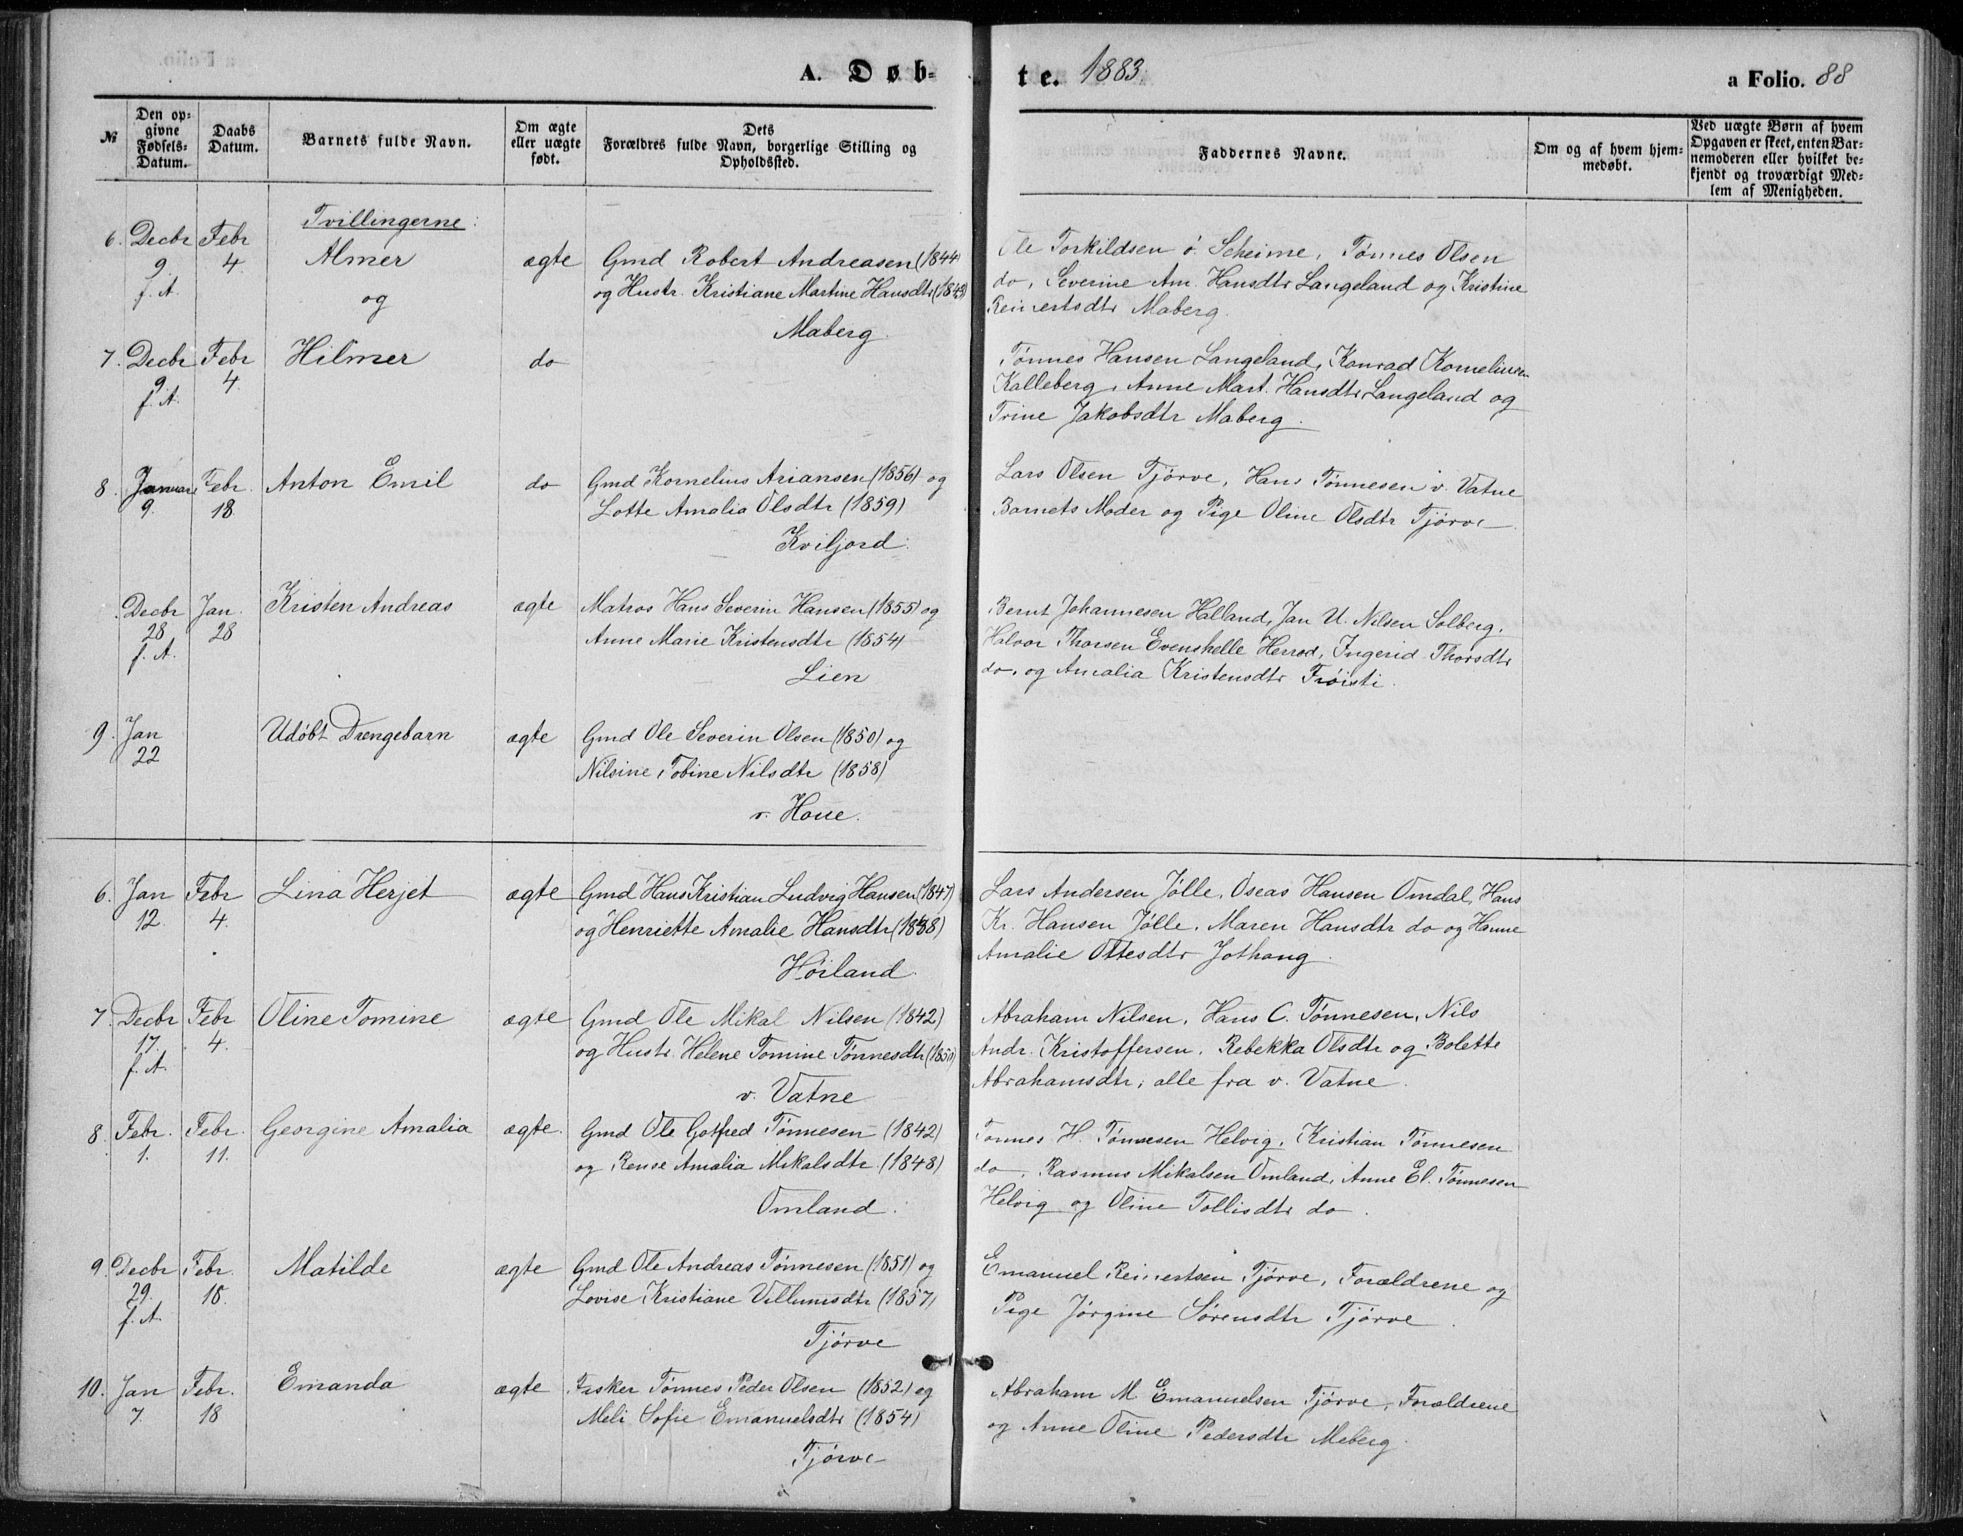 A. Døb-
te. 1883.
a Folio. 88
№
Den op-
givne
Fødsels-
Datum.
Daabs
Datum.
Barnets fulde Navn.
Om ægte
eller uægte
født.
Dets
Forældres fulde Navn, borgerlige Stilling og
Opholdssted.
Faddernes Navne.
Om og af hvem hjem-
medøbt.
Ved uægte Børn af hvem
Opgaven er skeet, enten Bar-
nemoderen eller hvilket be-
kjendt og troværdigt Med-
lem af Menigheden.
Tvillingerne:
6. Decbr 9. f. A. Febr 4. Almer ægte
og
Gmd Robert Andreasen (1844)
og Hustr. Kristiane Martine Hansdtr
Maberg.
Ole Torkildsen ó. Scheime, Tønnes Olsen
do, Severine Am. Hansdtr Langeland og Kristine
Reinertsdtr Maberg.
7. Decbr 9. f. A. Febr 4. Hilmer do
Tønnes Hansen Langeland, Konrad Korneliusen
Kalleberg, Anne Mart. Hansdtr Langeland og
Trine Jakobsdtr Maberg.
8. Januar 9. Febr. 18. Anton Emil do
Gmd Kornelius Ariansen (1856) og
Lotte Amalia Olsdtr (1859)
Kviljord.
Lars Olsen Tjørve, Hans Tønnesen v. Vatne
Barnets Moder og Pige Oline Olsdtr Tjørve
Decbr 28 f. A. Jan. 28 Kristen Andreas ægte
Matros Hans Severin Hansen (1855) og
Anne Marie Kristensdtr (1854)
Lien
Bernt Johannesen Halland, Jan U. Nilsen Solberg,
Halvor Thorsen Evenskelle Herrod, Ingerid Thorsdtr
do, og Amalia Kristensdtr Frøisti.
9. Jan 22 Udøbt Drengebarn ægte
Gmd Ole Severin Olsen (1850) og
Nilsine Tobine Nilsdtr (1858)
v. Haue.
6. Jan 12. Febr 4. Lina Herjet ægte
Gmd Hans Kristian Ludvig Hansen (1847)
og Henriette Amalie Hansdtr
Høiland.
Lars Andersen Jølle, Oseas Hansen Omdal, Hans
Kr. Hansen Jølle, Maren Hansdtr do og Hanne
Amalie Ottesdtr Jothang.
7. Decbr 17. f. A. Febr 4. Oline Tomine ægte
Gmd Ole Mikal Nilsen (1842)
og Hustr. Helene Tomine Tønnesdtr
v. Vatne
Abraham Nilsen, Hans C. Tønnesen, Nils
Andr. Kristoffersen, Rebekka Olsdtr og Bolette
Abrahamsdtr, alle fra v. Vatne.
8. Febr. 1. Febr. 11. Georgine Amalia ægte.
Gmd Ole Gotfred Tønnesen (1842)
og Rense Amalia Mikalsdtr (1848)
Omland.
Tønnes H. Tønnesen Helvig, Kristian Tønnesen
do, Rasmus Mikalsen Omland, Anne El. Tønnesen
Helvig og Oline Tollisdtr do.
9. Decbr 29. f. A. Febr. 18. Matilde ægte
Gmd Ole Andreas Tønnesen (1851) og
Lovise Kristiane Villumsdtr (1857)
Tjørve
Emanuel Reinertsen Tjørve, Forældrene og
Pige Jørgine Sørensdtr Tjørve.
10. Jan 7. Febr. 18 Emanda ægte
Fisker Tønnes Peder Olsen (1852) og
Meli Sofie Emanuelsdtr (1854)
Tjørve
Abraham M. Emanuelsen Tjørve, Forældrene
og Anne Oline Pedersdtr Meberg.